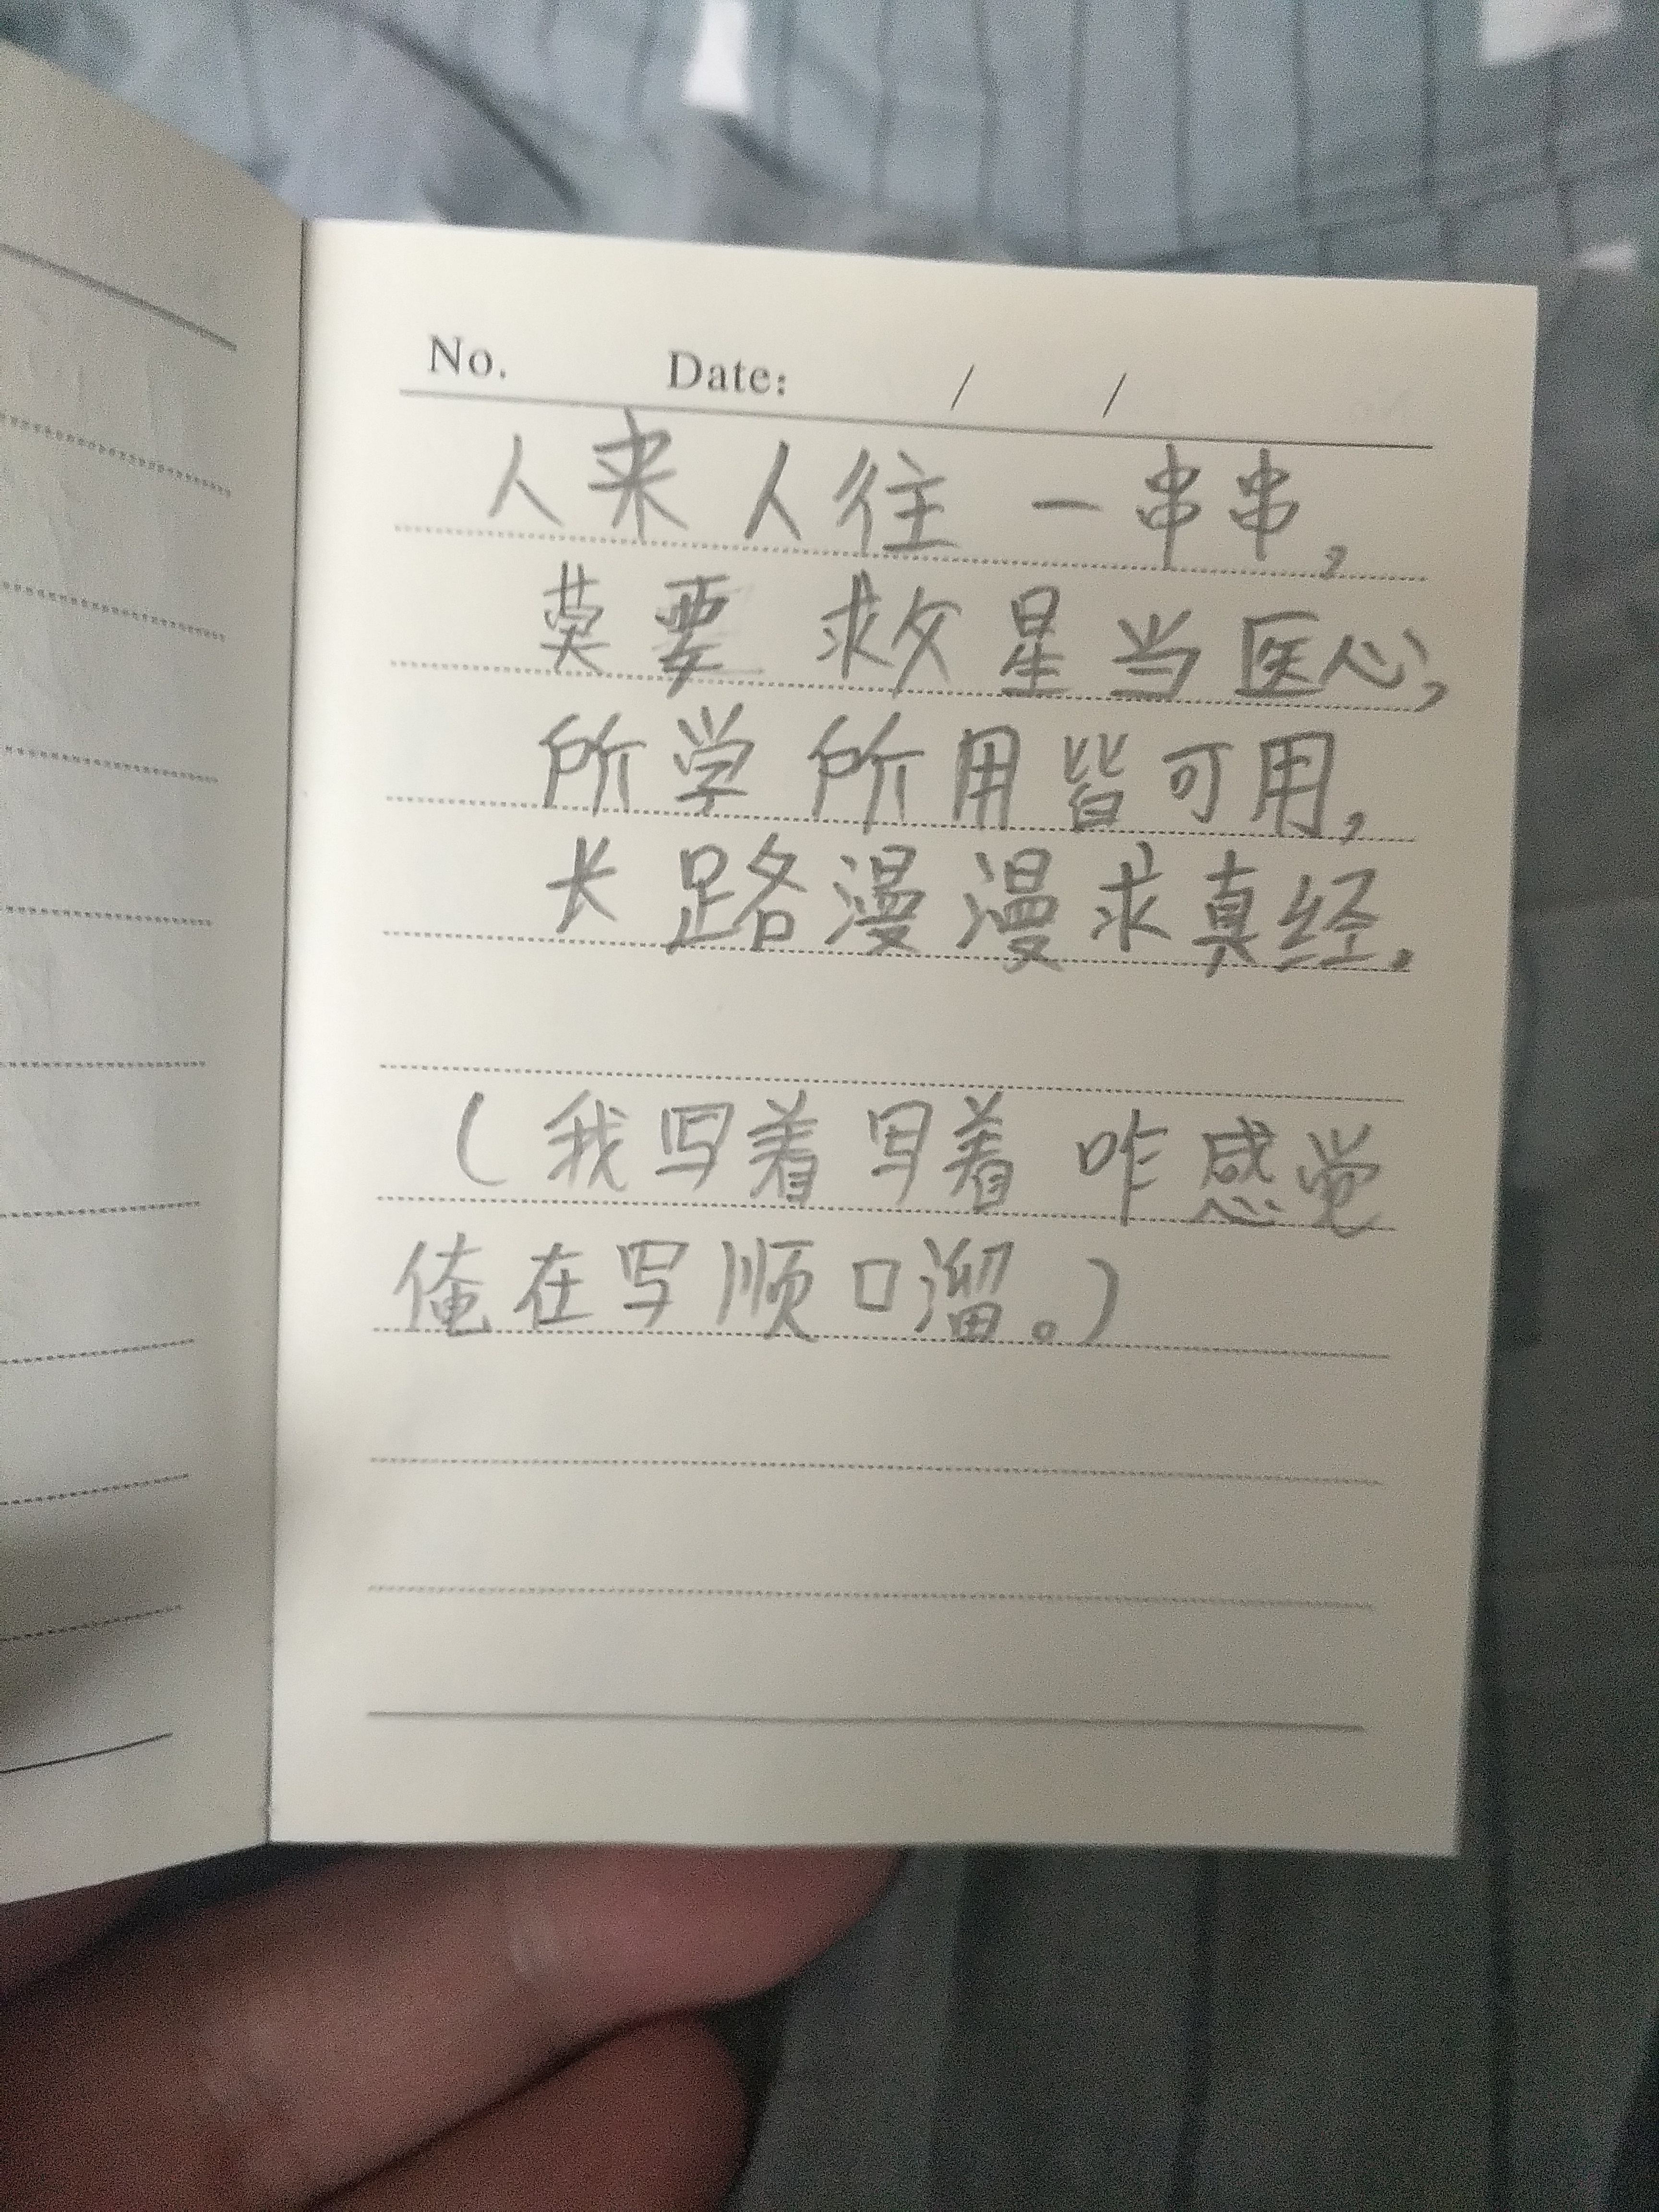 No. Date: / /
人来人往一串串,
莫要救星当医心,
所学所用皆可用,
长路漫漫求真经.
(我写着写着咋感觉
俺在写顺口溜。)